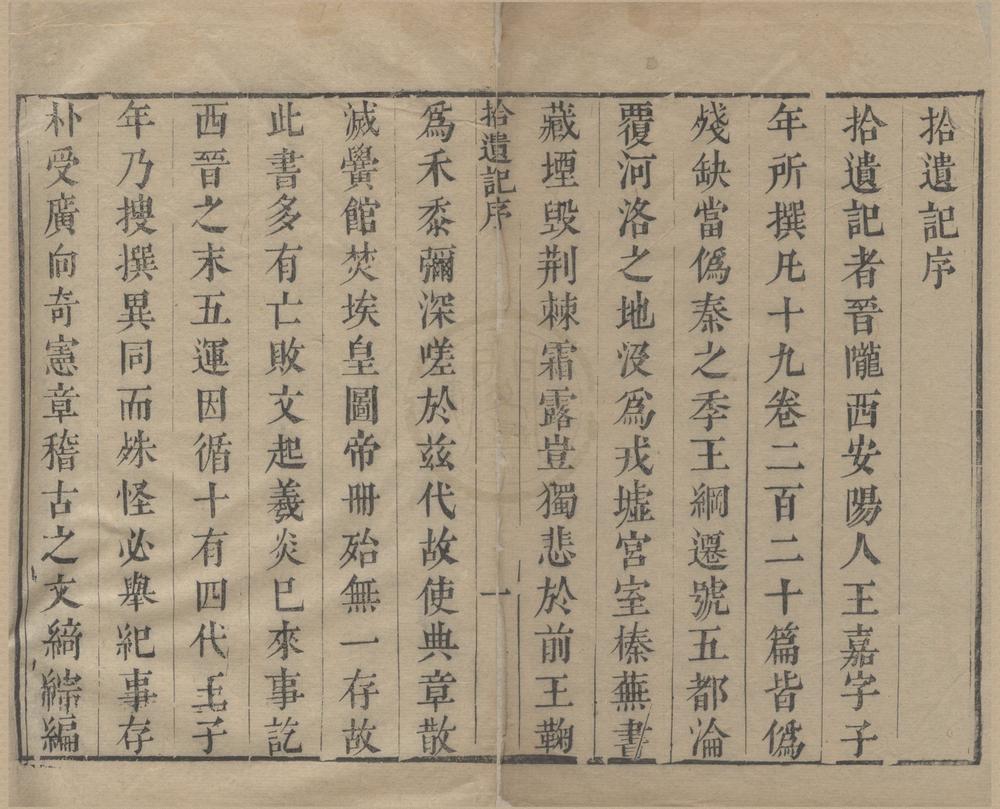 拾遺記序
拾遺記者晉隴西安陽人王嘉字子
年所撰凡十九卷二百二十篇皆爲
殘缺當僞秦之季王綱遷號五都淪
覆河洛之地沒爲戎墟宮室榛蕪書
藏堙毀荆棘霜露豈獨悲於前王鞠
拾遺記序 一
爲禾黍彌深嗟於茲代故使典章散
滅黌館焚埃皇圖帝冊殆無一存故
此書多有亡敗文起羲炎已來事訖
西晉之末五運因循十有四代王子
年乃搜撰異同而殊怪必舉紀事存
朴受廣向奇憲章稽古之文綺綜編